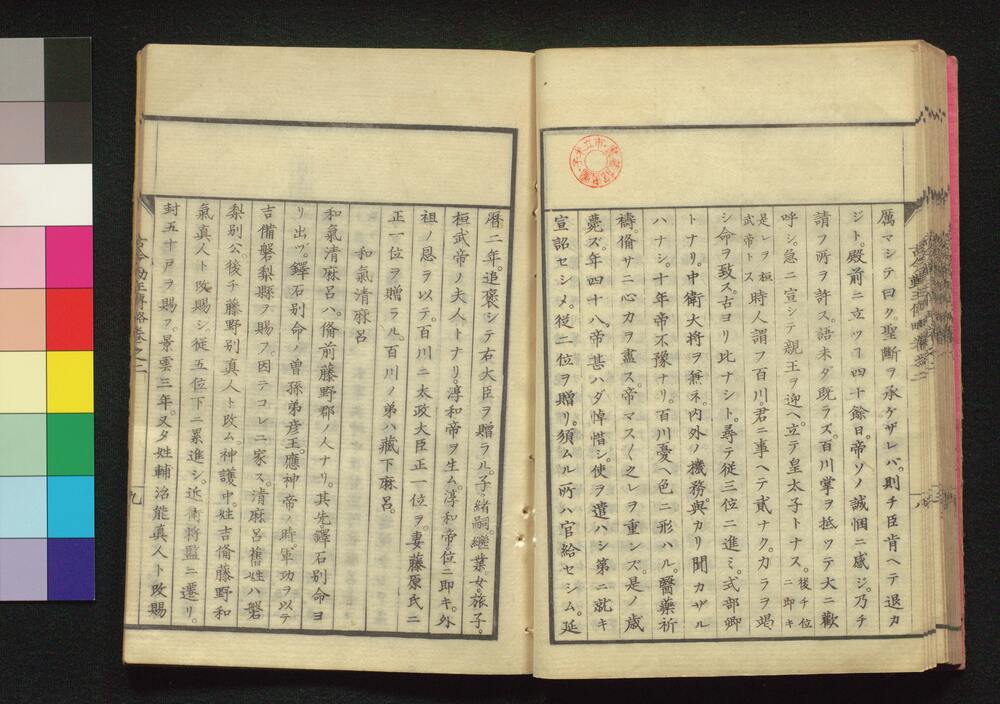 厲マシテ曰ク。聖斷ヲ承ケザレバ。則チ臣肯ヘテ退カ
ジト。殿前ニ立ツヿ四十餘日。帝ソノ誠悃ニ感ジ。乃チ
請フ所ヲ許ス。語未ダ既ラズ。百川掌ヲ抵ツテ大ニ歡
呼シ。急ニ宣シテ親王ヲ迎ヘ。立テ皇太子トナス。後チ位ニ即キ
是レヲ桓武帝トス 時人謂フ百川。君ニ事ヘテ貳ナク。力ヲ竭
シ命ヲ致ス。古ヨリ比ナシト。尋テ従三位ニ進ミ。式部卿
トナリ。中衛大将ヲ兼ネ。内外ノ機務。與カリ聞カザル
ハナシ。十年帝不豫ナリ。百川憂ヘ色ニ形ハル。醫藥祈
禱。備サニ心カヲ盡ス。帝マス〱之レヲ重ンズ。是ノ歳
薨ズ。年四十八。帝甚ハダ悼惜シ。使ヲ遣ハシ第ニ就キ
宣詔セシメ。従二位ヲ贈リ。須ムル所ハ官給セシム。延
暦二年。追褒シテ右大臣ヲ贈ラル。子ハ緒嗣。繼業。女。旅子。
桓武帝ノ夫人トナリ。淳和帝ヲ生ム。淳和帝位ニ即キ。外
祖ノ恩ヲ以テ。百川ニ太政大臣正一位ヲ。妻藤原氏ニ
正一位ヲ贈ラル。百川ノ弟ハ藏下麻呂。
和氣清麻呂
和氣清麻呂ハ。備前藤野郡ノ人ナリ。其先鐸石別命ヨ
リ出ヅ。鐸石別命ノ曽孫弟彦王。應神帝ノ時。軍功ヲ以テ
吉備磐梨縣ヲ賜フ。因テコレニ家ス。清麻呂舊姓ハ磐
梨別公。後チ藤野別真人ト改ム。神護中。姓吉備藤野和
氣真人ト改賜シ。従五位下ニ累進シ。近衛将監ニ遷リ。
封五十戸ヲ賜フ。景雲三年。又タ姓輔治能真人ト改賜
古今勤王傳略巻之二
九